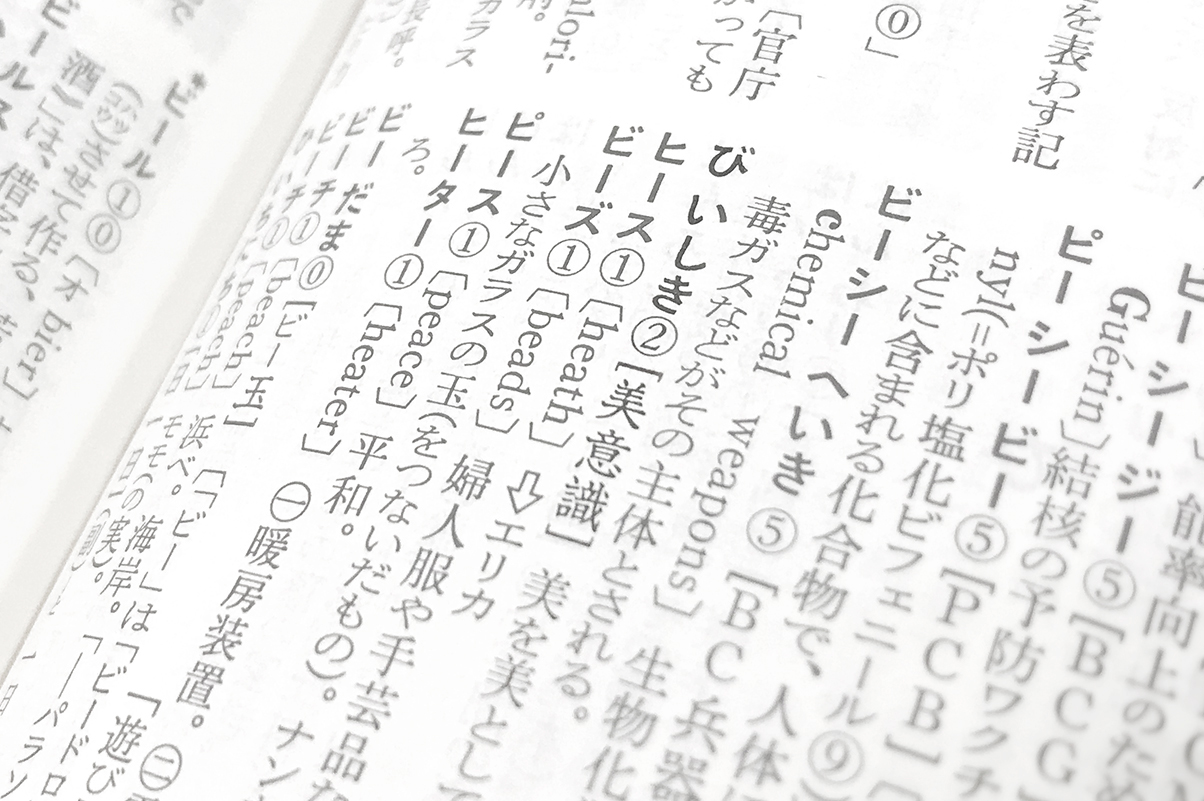 を表わす記
⓪」
〔官庁
がっても
alori-
ガラス
長呼。
能率向上のため
ビーシージー⑤[BCG]
Guérin〕結核の予防ワクチ
ピーシービー⑤[PCB]〔
nyl(=ポリ塩化ビフェニール⑨)
などに含まれる化合物で、人体
ビーシーへいき⑤[BC兵器
chemical weapons〕生物化
毒ガスなどがその主体とされる。
びいしき②[美意識]美を美として
ヒース①〔heath〕⇨エリカ
ビーズ①〔beads〕婦人服や手芸品な
小さなガラスの玉(をつないだもの)。
ピース①〔peace〕平和。
ヒーター①〔heater〕㊀暖房装置。㊁
ろ。
ビーだま⓪[ビー玉]〔「ビー」は「ビードロ
ビーチ①〔beach〕浜べ。海岸。「―パラソ
ピーチ①〔peach〕モモ(の実)。
ビール①⓪〔オ bier〕
(ハッコウ)させて作る、
酒)」は、借字
ビールス